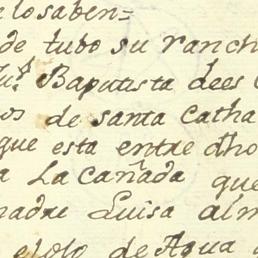 e lo saben=
de tubo su ranch
Juº Baptista dees
os de santa Catha
que esta entre dho
a La cañada que
madre Luisa alm
el olo de Agua